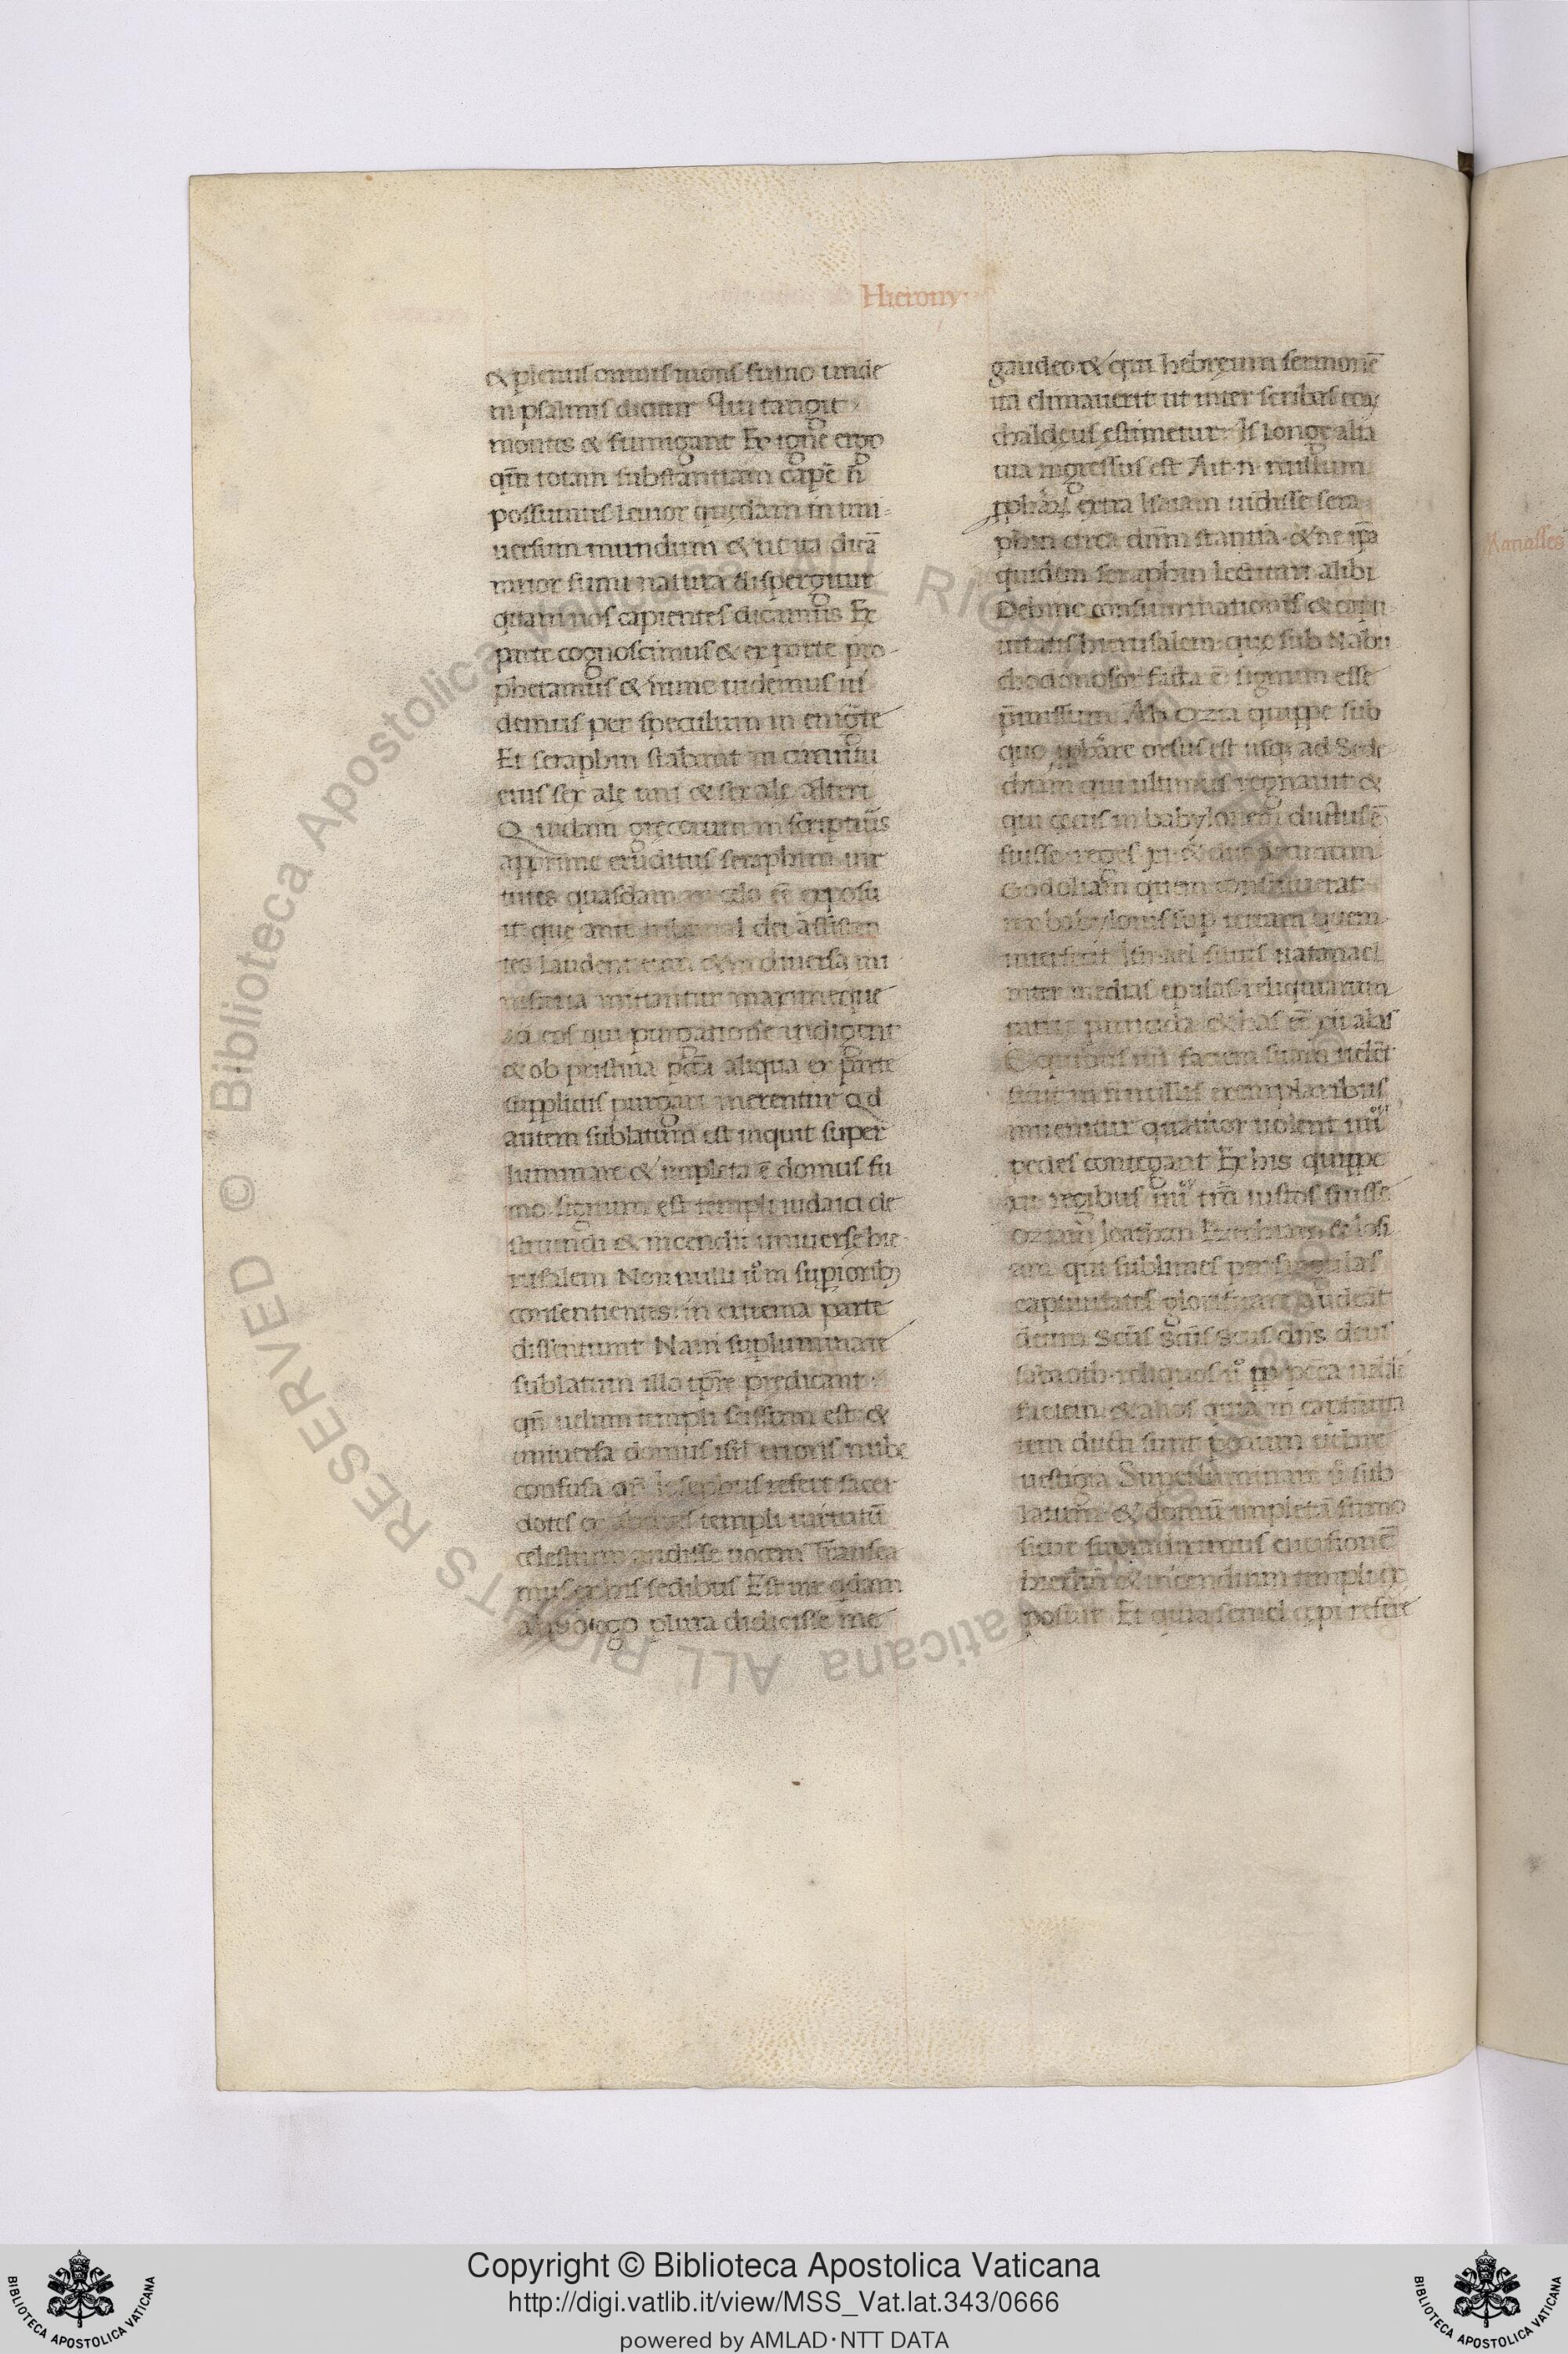 Hieronỹ
& plenus omnis mons fumo unde
in psalmis dicitur Qui tangit
montes & fumigant Ex igne ergo
qm̄ totam substantiam capē n̄
possumus leuior quędam in uni
uersum mundum & ut ita dicā
rarior fumi natura dispergitur
quam nos capientes dicamus Ex
parte cognoscimus & ex parte pro
phetamus & nunc uidemus ui
demus per speculum in enigm̄te
Et seraphin stabant in circuitu
eius sex ale uni & sex ale alteri
Quidam gręcorum in scripturis
apprime eruditus seraphim uir
tutes quasdam in celo eē exposu
it que ante tribunal dei assisten
tes laudent eum & in diuersa mi
nisteria mittantur maximeque
ad eos qui purgatione indigent
& ob pristina pctā aliqua ex parte
suppliciis purgari merentur Qd
autem sublatum est inquit super
luminare & impleta ē domus fu
mo signum est templi iudaici de
struendi & incendii uniuerse hie
rusalem Non nulli u͛o in supiorib;
consentientes in extrema parte
dissentiunt Nam supluminare
sublatum illo tpr̄e prędicant
qn̄ uelum templi scissum est &
uniuersa domus isrl̄ erroris nube
confusa qn̄ Iosephus refert sacer
dotes ex aditis templi uirtutū
celestium audisse uocem Transea
mus ex his sedibus Est uir qdam
a quo ego plura didicisse me
gaudeo & qui hebręum sermonē
ita elimauerit ut inter scribas eoꝝ
chaldęus ęstimetur Is longe alia
uia ingressus est Ait n̄ nullum
pphãꝝ extra Isaiam uidisse sera
phin circa dnm̄ stantia & ne ipā
quidem seraphin lectitari alibi
Dehinc consummationis & capti
uitatis hierusalem que sub Nabu
chodonosor facta ē signum esse
p̄missum Ab Ozia quippe sub
quo pphãre orsus est usq; ad Sede
chiam qui ultimus regnauit &
qui cęcus in babylonem ductus ē
fuisse reges xi & duodecimum
Godoliam quem constituerat
rex babylonis sup terram quem
interfecit Ismael filius Natanael
inter medias epulas reliquiarum
patrie parricida & has eē xii alas
E quibus iiii faciem suam uelēt
sicut in nonnullis exemplaribus
inuenitur quatuor uolent iiiiᵒʳ
pedes contegant Ex his quippe
xii regibus iiiiᵒʳ tm̄ iustos fuisse
Oziam Ioathan Ezechiam & Iosi
am qui sublimes per singulas
captiuitates glorificare audeāt
deum Scūs Scūs Scūs dn̄s deus
sabaoth reliquos u͛o pp peccā uelare
faciem & alios quia in captiuita
tem ducti sunt pedum uelare
uestigia Superluminare u͛o sub
latum & domū impletā fumo
sicut supra diximus euersionē
hierlm̄ & incendium templi ex
posuit Et quia semel cępi referre
Manasses
Biblioteca Apostolica Vaticana ALL RIGHTS RESERVED ©
Copyright © Biblioteca Apostolica Vaticana
http://digi.vatlib.it/view/MSS_Vat.lat.343/0666
powered by AMLAD·NTT DATA
BIBLIOTECA APOSTOLICA VATICANA
BIBLIOTECA APOSTOLICA VATICANA